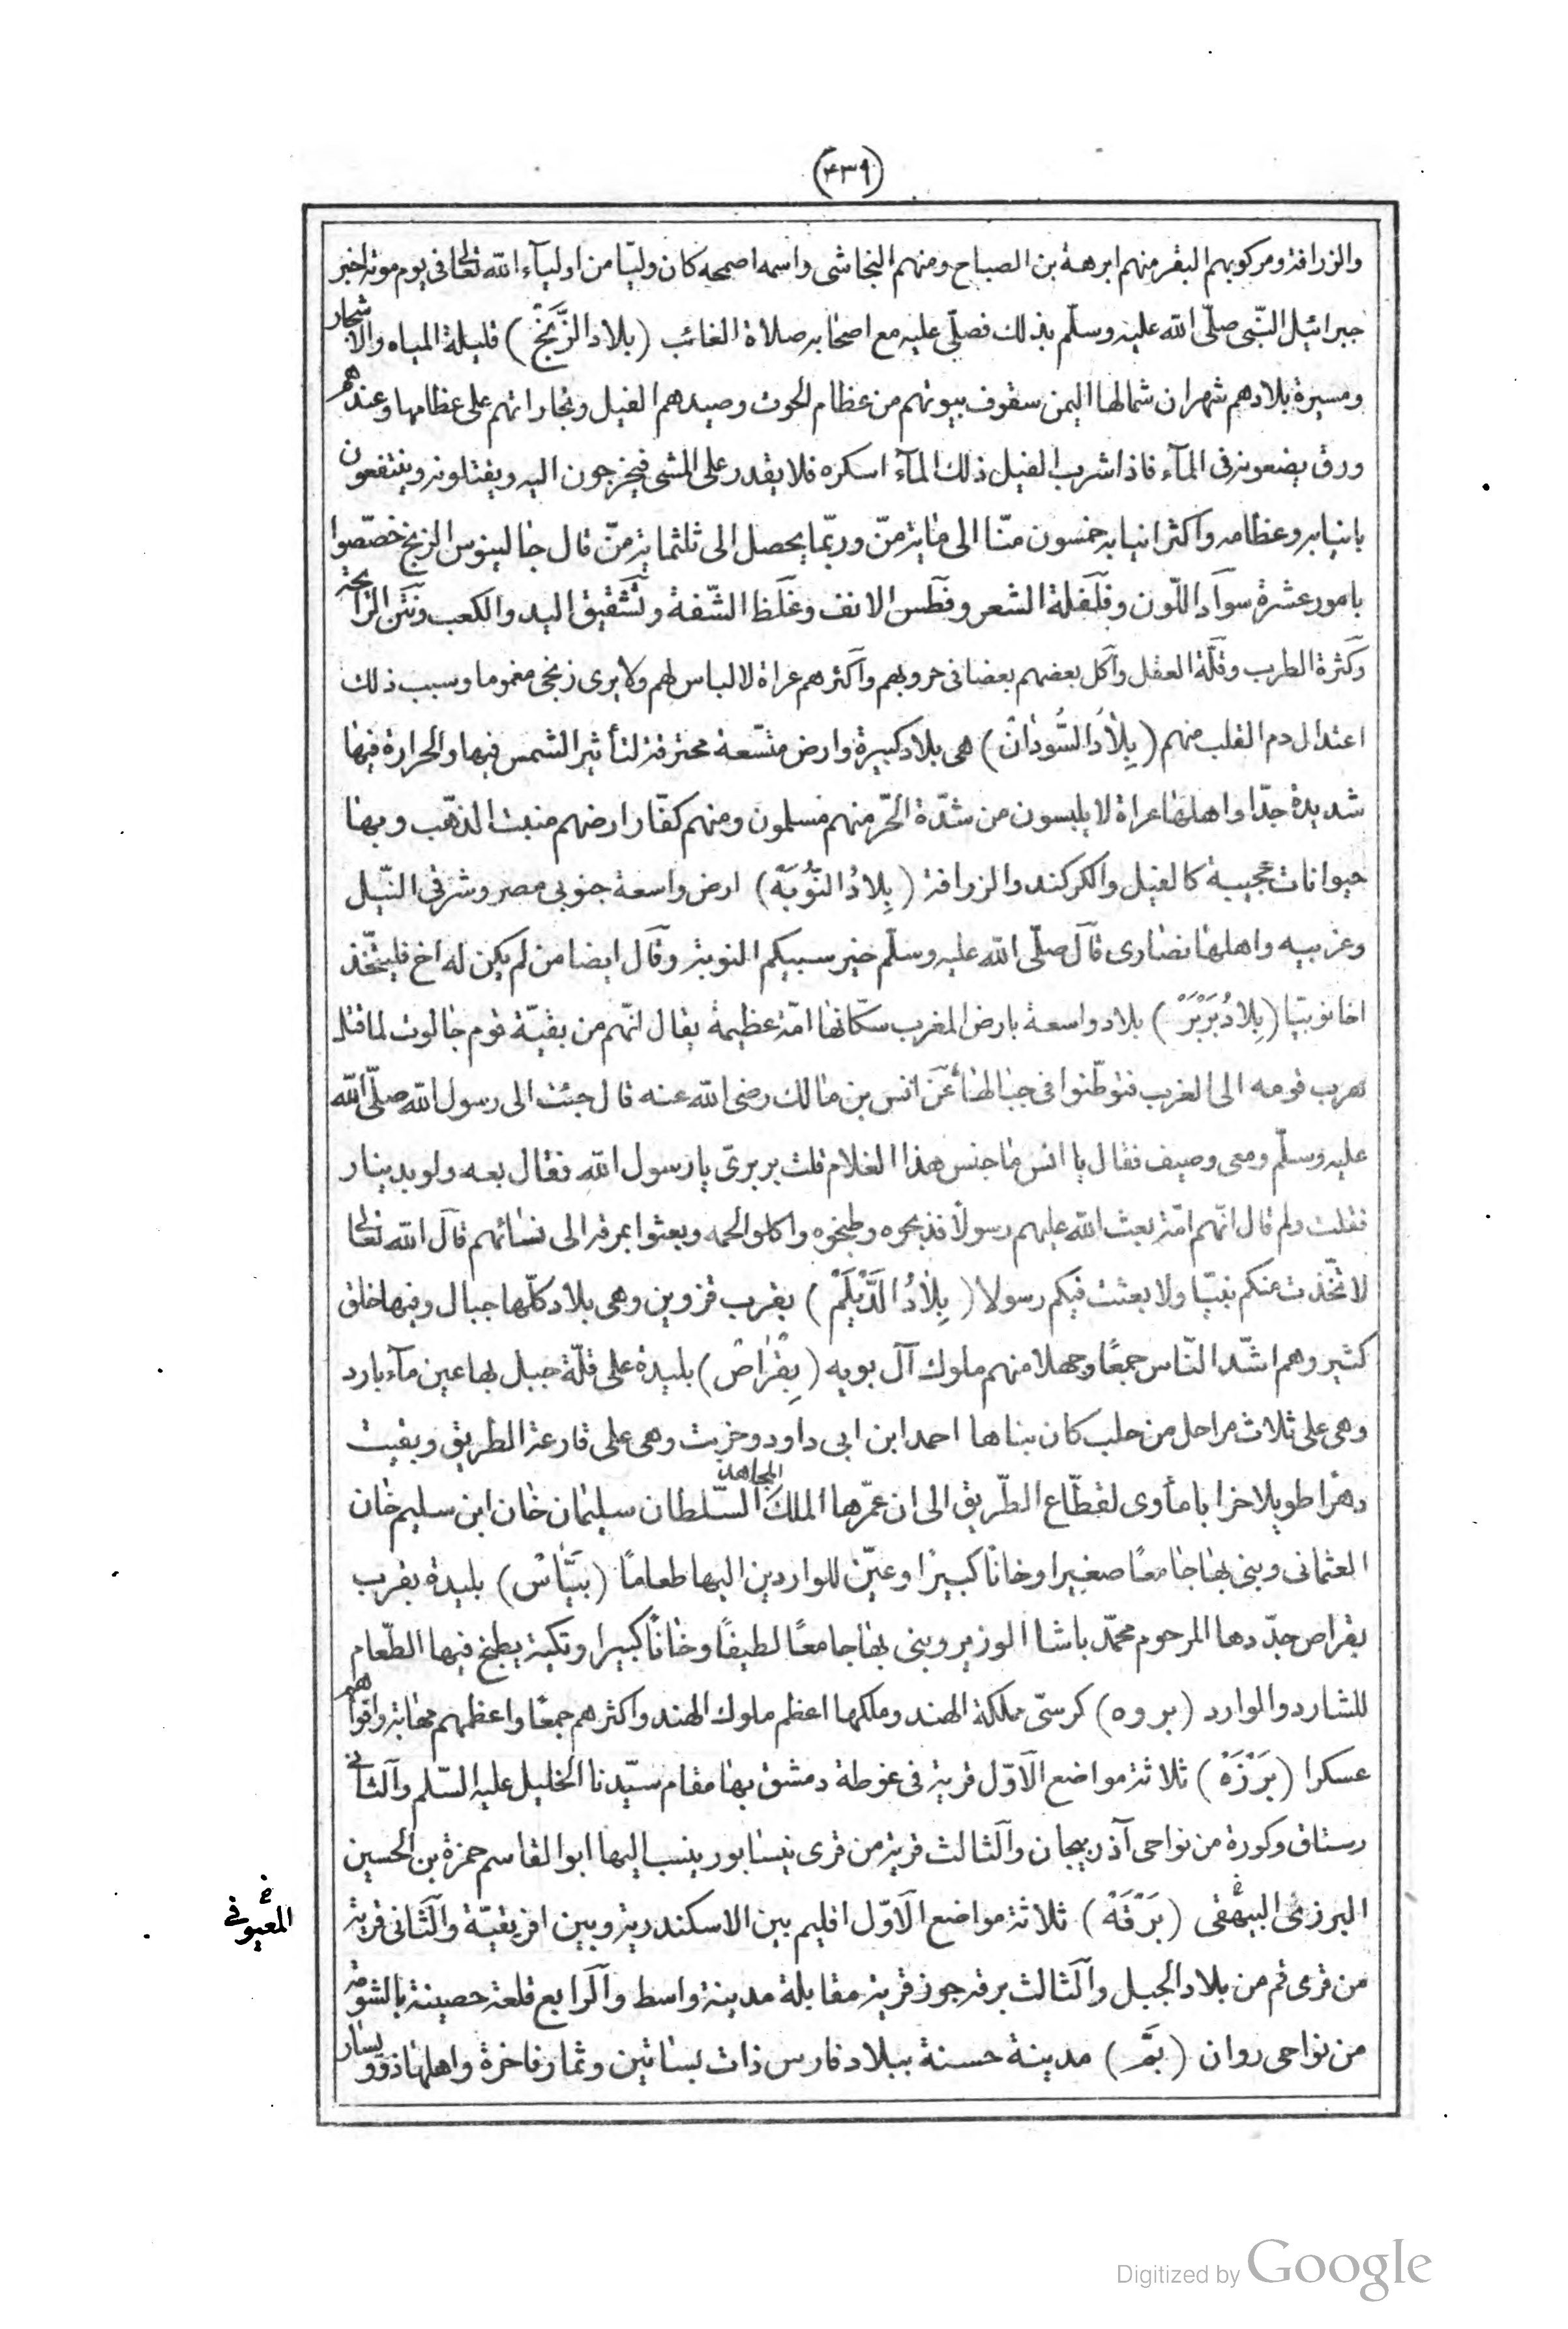 (٤٣٩)
والزرافة ومركوبهم البقر منهم ابرهة بن الصباح ومنهم النجاشى واسمه اصحمه كان وليّا من اوليآء الله تعالى فى يوم موته اخبر
جبرائيل النّبى صلّى الله عليه وسلّم بذلك فصلّى عليه مع اصحابه صلاة الغائب (بلاد الزَّنْجْ) قليلة المياه والاشجار
ومسيرة بلادهم شهران شمالها اليمن سقوف بيوتهم من عظام الحوت وصيدهم الفيل وتجاراتهم على عظامها وعندهم
ورق يضعونه فى المآء فاذا شرب الفيل ذلك المآء اسكره فلا يقدر على المشى فيخرجون اليه ويقتلونه وينتفعون
بانيابه وعظامه واكثر انيابه خمسون منّا الى مائة منّ وربّما يحصل الى ثلثمائة منّ قال جالينوس الزنج خصّصوا
بامور عشرة سواد اللّون وفلفلة الشعر وفطس الانف وغلظ الشّفة وتشقيق اليد والكعب ونتن الرائحة
وكثرة الطرب وقلّة العقل واكل بعضهم بعضا فى حروبهم واكثرهم عراة لا لباس لهم ولا يرى زنجى مغموما وسبب ذلك
اعتدال دم القلب منهم (بِلاَدُ السُّودَانْ) هى بلاد كبيرة وارض متّسعة محترقة لتأثير الشمس فيها والحرارة فيها
شديدة جدّا واهلها عراة لا يلبسون من شدّة الحّر منهم مسلمون ومنهم كفّار ارضهم منبت الذهّب وبها
حيوانات عجيبة كالفيل والكركند والزرافة (بِلادُ النُّوبَةْ) ارض واسعة جنوبى مصر وشرقى النّيل
وغربيه واهلها نصارى قال صلّى الله عليه وسلّم خير سبيكم النوبة وقال ايضا من لم يكن له اخ فليتّخذ
اخا نوبيّا (بِلادُ بَرْبَرْ) بلاد واسعة بارض المغرب سكّانها امّة عظيمة يقال انّهم من بقيّة قوم جالوت لما قتل
هرب قومه الى الغرب فتوطّنوا فى جبالها عن انس بن مالك رضى الله عنه قال جئت الى رسول الله صلّى الله
عليه وسلّم ومعى وصيف فقال يا انس ما جنس هذا الغلام قلت بربرىّ يا رسول الله فقال بعه ولو بدينار
فقلت ولم قال انّهم امّة بعث الله عليهم رسولاً فذبحوه وطبخوه واكلوا لحمه وبعثوا بمرقه الى نسائهم قال الله تعالى
لا تّخذت منكم نبيّا ولا بعثت فيكم رسولا (بِلاَدُ الدَّيْلَمْ) بقرب قزوين وهى بلاد كلّها جبال وفيها خلق
كثير وهم اشّد النّاس جمعًا وجهلا منهم ملوك آل بويه (بِقْرَاصْ) بليدة على قلّة جبل بها عين مآء بارد
وهى على ثلاث مراحل من حلب كان بناها احمد ابن ابى داود وخربت وهى على قارعة الطريق وبقيت
دهرًا طويلا خرابا مأوى لقطّاع الطّريق الى ان عمّرها الملك المجاهد السّلطان سليمان خان ابن سليم خان
العثمانى وبنى بها جامعًا صغيرا وخانًا كبيرًا وعيّن للواردين اليها طعامًا (بَيَّاسْ) بليدة بقرب
بقراص جدّدها المرحوم محمّد باشا الوزير وبنى بها جامعًا لطيفًا وخانًا كبيرا وتكية يطبخ فيها الطّعام
للشارد والوارد (بروه) كرسّى مملكة الهند وملكها اعظم ملوك الهند واكثرهم جمعًا واعظمهم مهابة واقواهم
عسكرا (بَرْزَةْ) ثلاثة مواضع الاوّل قرية فى غوطة دمشق بها مقام سيّدنا الخليل عليه السّلم والثانى
رستاق وكورة من نواحى آذربيجان والثالث قرية من قرى نيسابور ينسب اليها ابو القاسم حمزة بن الحسين
البرزىّ البيهقى (بَرْقَةْ) ثلاثة مواضع الاوّل اقليم بين الاسكندرية وبين افريقيّة والثانى قرية
من قرى قم من بلاد الجبل والثالث برقه جوز قرية مقابلة مدينة واسط والرابع قلعة حصينة بالشوقة
من نواحى روان (بَمَّ) مدينة حسنة ببلاد فارس ذات بساتين وثمار فاخرة واهلها ذوو يسار
Digitized by Google